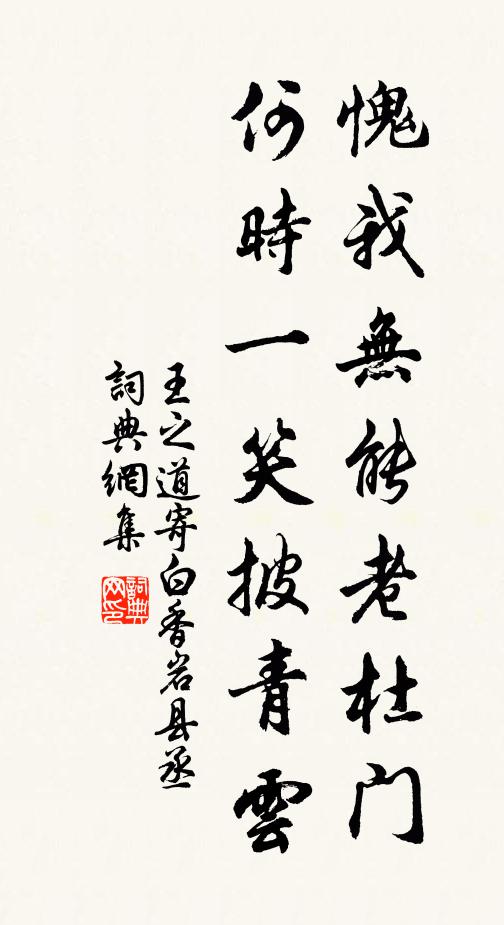 愧我無能老杜门
何時一笑披青雲
王之道寄白香岩县丞
詞典網集
詞典网印